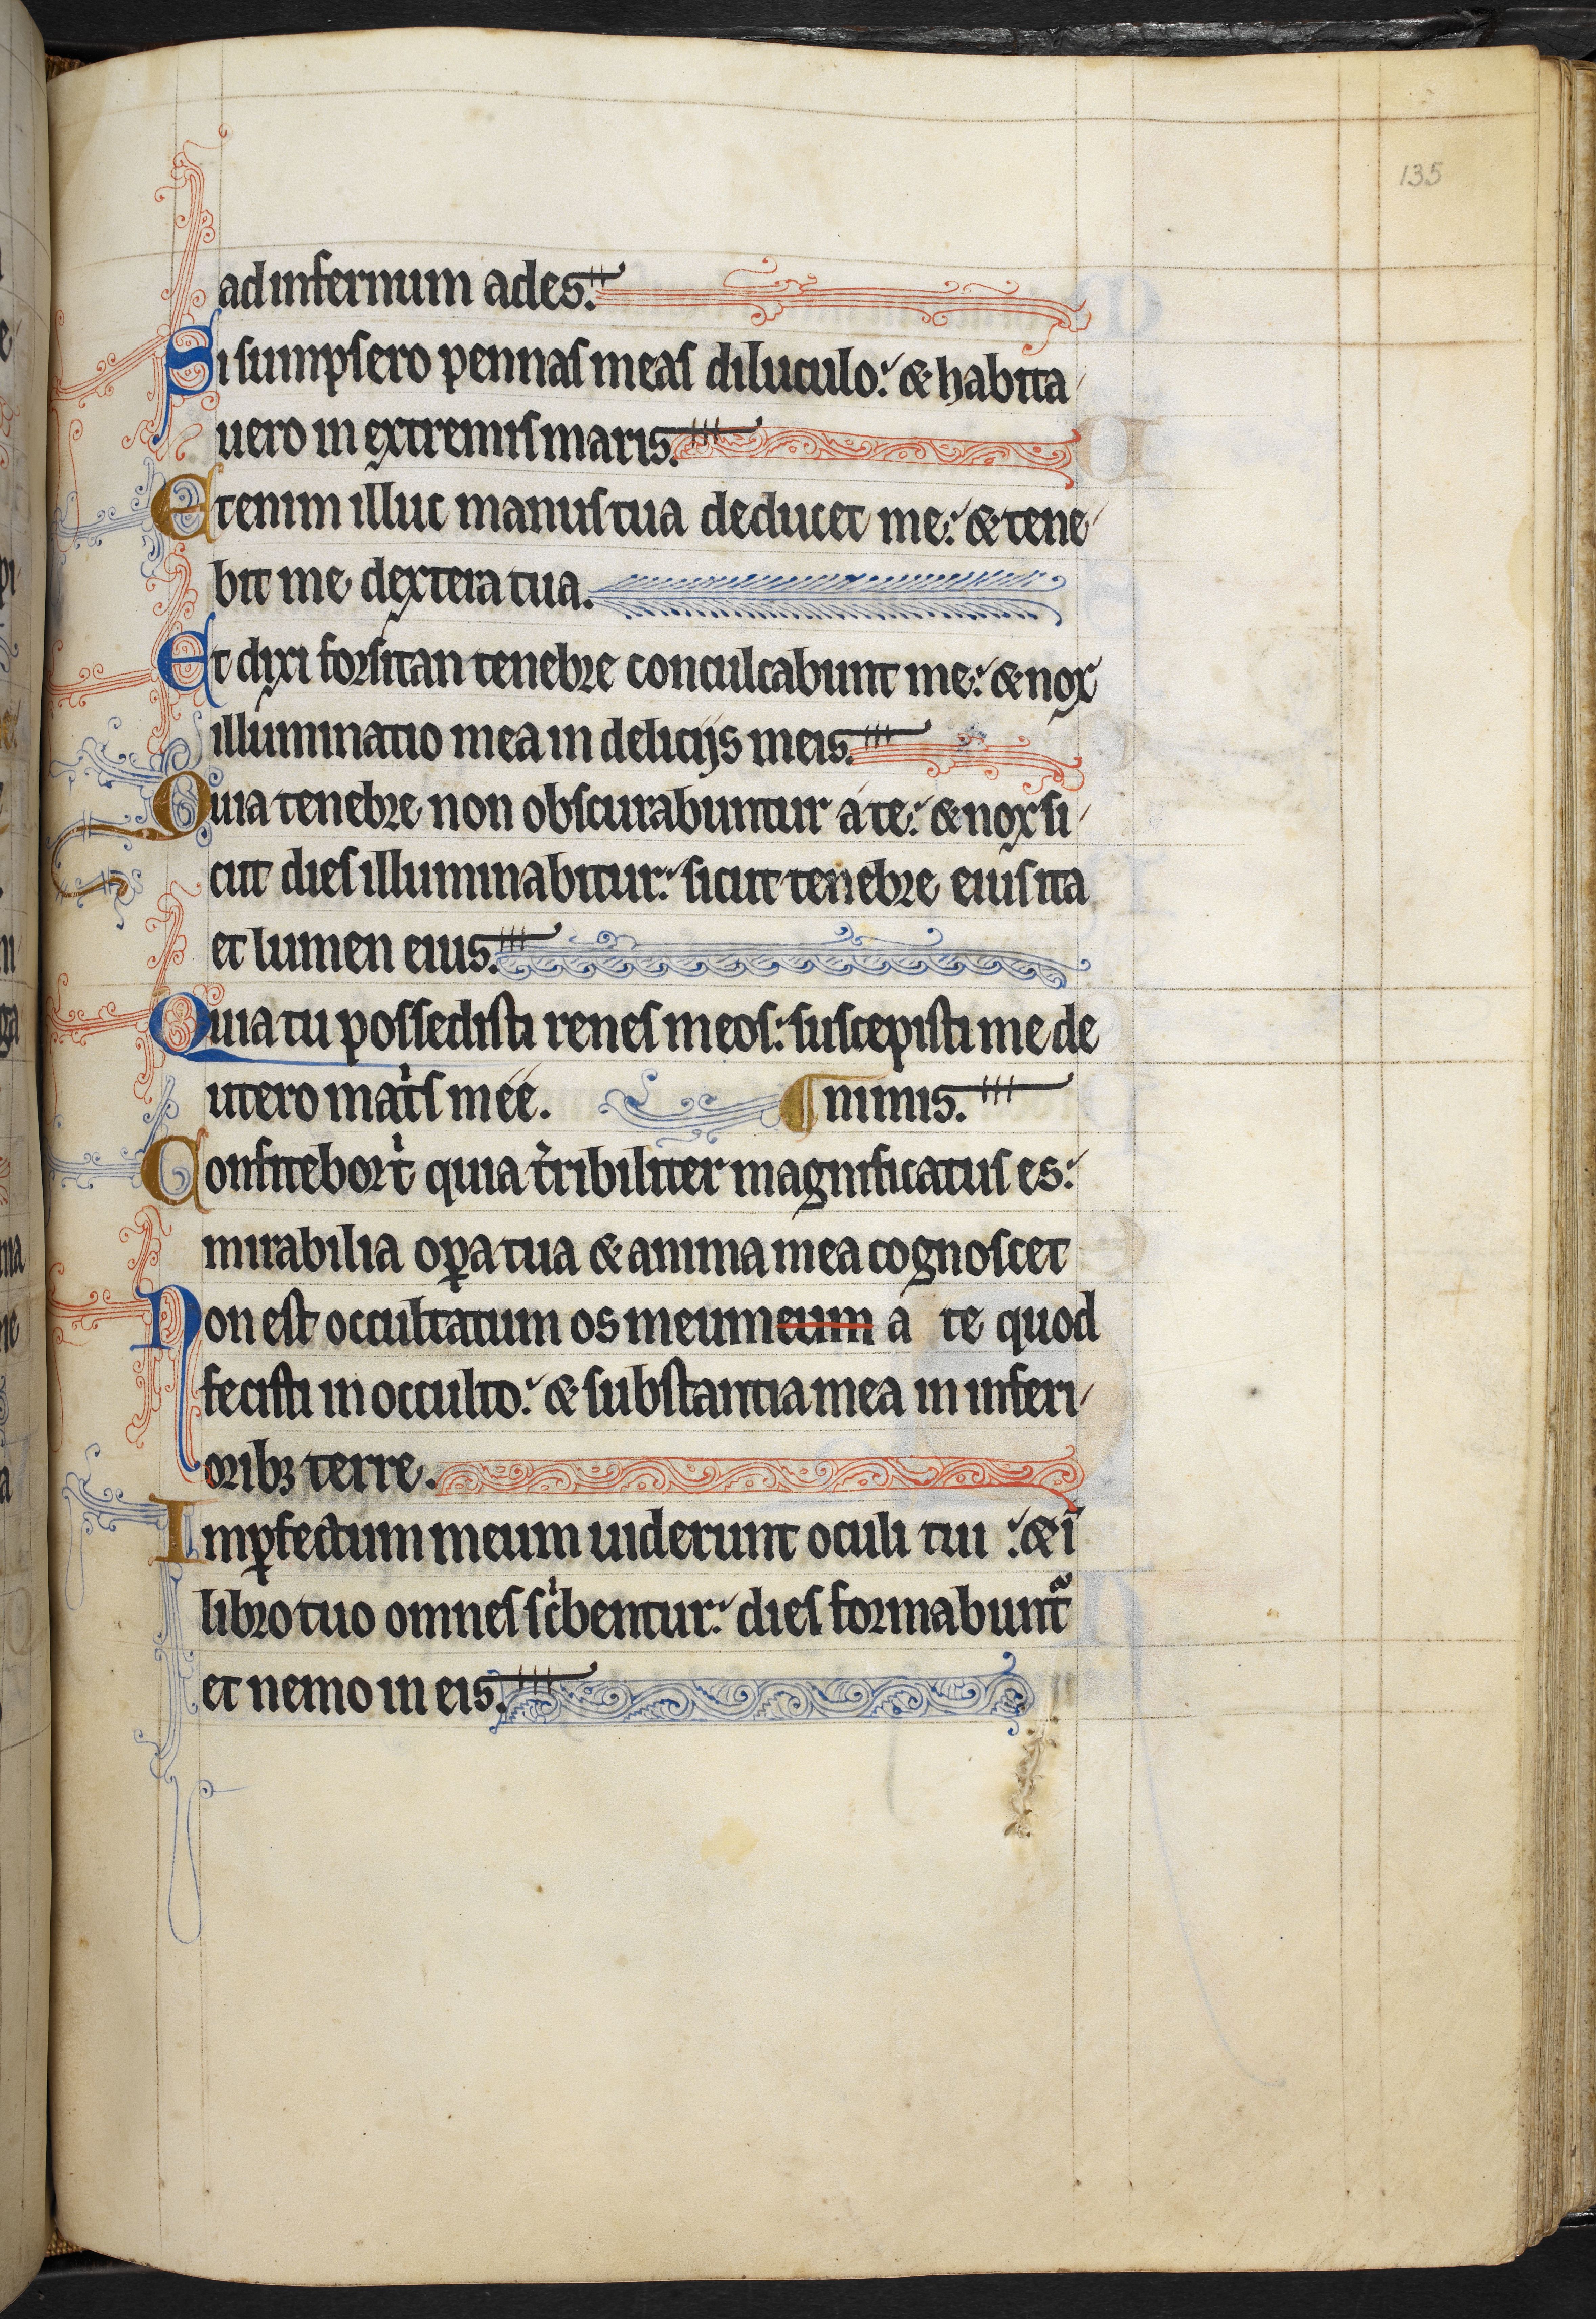 135
ad infernum ades.
Si sumpsero pennas meas diluculo: & habita
uero in extremis maris.
Etenim illuc manus tua deducet me: & tene
bit me dextera tua.
Et dixi forsitan tenebre conculcabunt me: & nox
illuminatio mea in deliciis meis.
Quia tenebre non obscurabuntur a te: & nox si
cut dies illuminabitur: sicut tenebre eius ita
et lumen eius.
Quia tu possedisti renes meos: suscepisti me de
utero mat̓s mee. ¶ nimis.
Confitebor t̓ quia t̓ribiliter magnificatus es:
mirabilia oꝑa tua & anima mea cognoscet
Non est occultatum os meumeum a te quod
fecisti in occulto: & substantia mea in inferi
oribꝫ terre.
Imꝑfectum meum uiderunt oculi tui : & ī
libro tuo omnes sc̓bentur: dies formabuntᷓ
et nemo in eis.